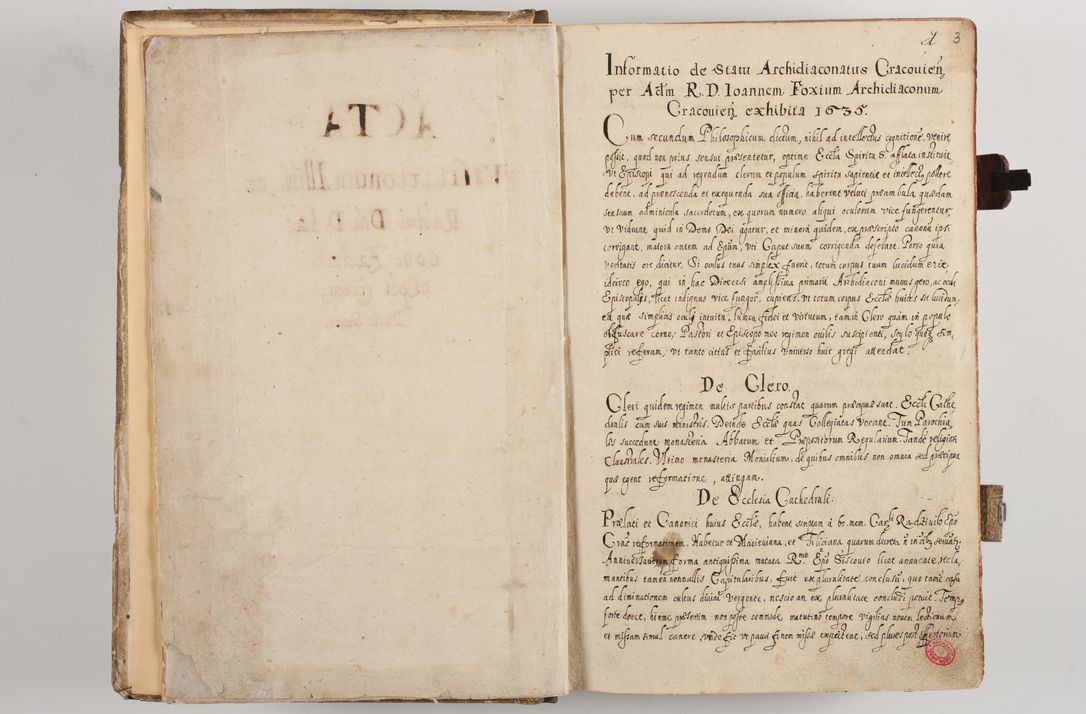 ACTA
A 3
Informatio de Statu Archidiaconatus Cracouien̄
per Ad̄m R. D. Ioannem Foxium Archidiaconum
Cracouien̄ exhibita 1635.
Cum secundum Philosophicum dictum, nihil ad intellectus cognitionē, venire
possit, quod non prius sensui præsentetur, optime Eccl̄a Spiritu S. afflata instituit
Vt Episcopi qui ad regendum clerum et populum spiritu sapientiæ et intellectꝰ pollere
debent, ad prænoscenda et exequenda sua officia haberent veluti præambula quædam
sensuum adminicula sacerdotum, ex quorum numero aliqui oculorum vice fungerentur,
vt videant quid in Domo Dei agatur, et minora quidem, ex præscripto canonū ipsi
corrigant, maiora autem ad Ep̄um, vti Caput suum corrigenda deferant. Porro quia
veritatis ore dicitur, Si oculus tuus simplex fuerit, totum corpus tuum lucidum erit
idcirco ego, qui in hac Dioecesi amplissima primarii Archidiaconi munus gero, ac oculi
Episcopalis, licet indignus vice fungor, cupiens, vt totum corpus Eccl̄æ huius sit lucidum,
ea quæ simplicis oculi intuitu, lumen fidei et virtutum, tam in Clero quàm in populo
obfuscare cerno, Pastori et Episcopo meo regimen ovilis suscipienti, stylo quoq̨ sim-
plici referam, vt tanto citius et facilius vniverso huic gregi attendat.
De Clero.
Cleri quidem regimen multis partibus constat quarum præcipuæ sunt. Eccl̄ia Cathe
dralis cum suis ministris. Deinde Eccl̄æ quas Collegiatas vocant. Tum Parochia
les succedunt monasteria Abbatum et Præpositorum Regularium. Tandē religiosi
Claustrales. Vltimo monasteria Monialium, de quibus omnibus non omnia sed præcipua
quæ egent reformatione, attingam.
De Ecclesia Cathedrali.
Prælati et Canonici huius Eccl̄æ, habent scriptam à bo. mem. Card̄li Radziuil Ep̄o
Crac̄ reformationem. Habetur et Macieiuiana, et Tiliciana quarum decreta n̄ in oībꝰ seruātr̄
Anniuersariorum forma antiquissima mutata Rmo Ep̄o Siscouio licet annuente, recla,
mantibus tamen nonnullis Capitularibus, fuit ex pluralitate conclusū, quo tamē casu
ad diminutionem cultus diuini vergente, nescio an ex pluralitate concludi potuit. Tempꝰ
forte docet, hieme præsertim non posse commode, matutino tempore vigilias nouem lectionum
et missam simul canere, vnde fit vt pauci finem missæ expectent, sed plures post